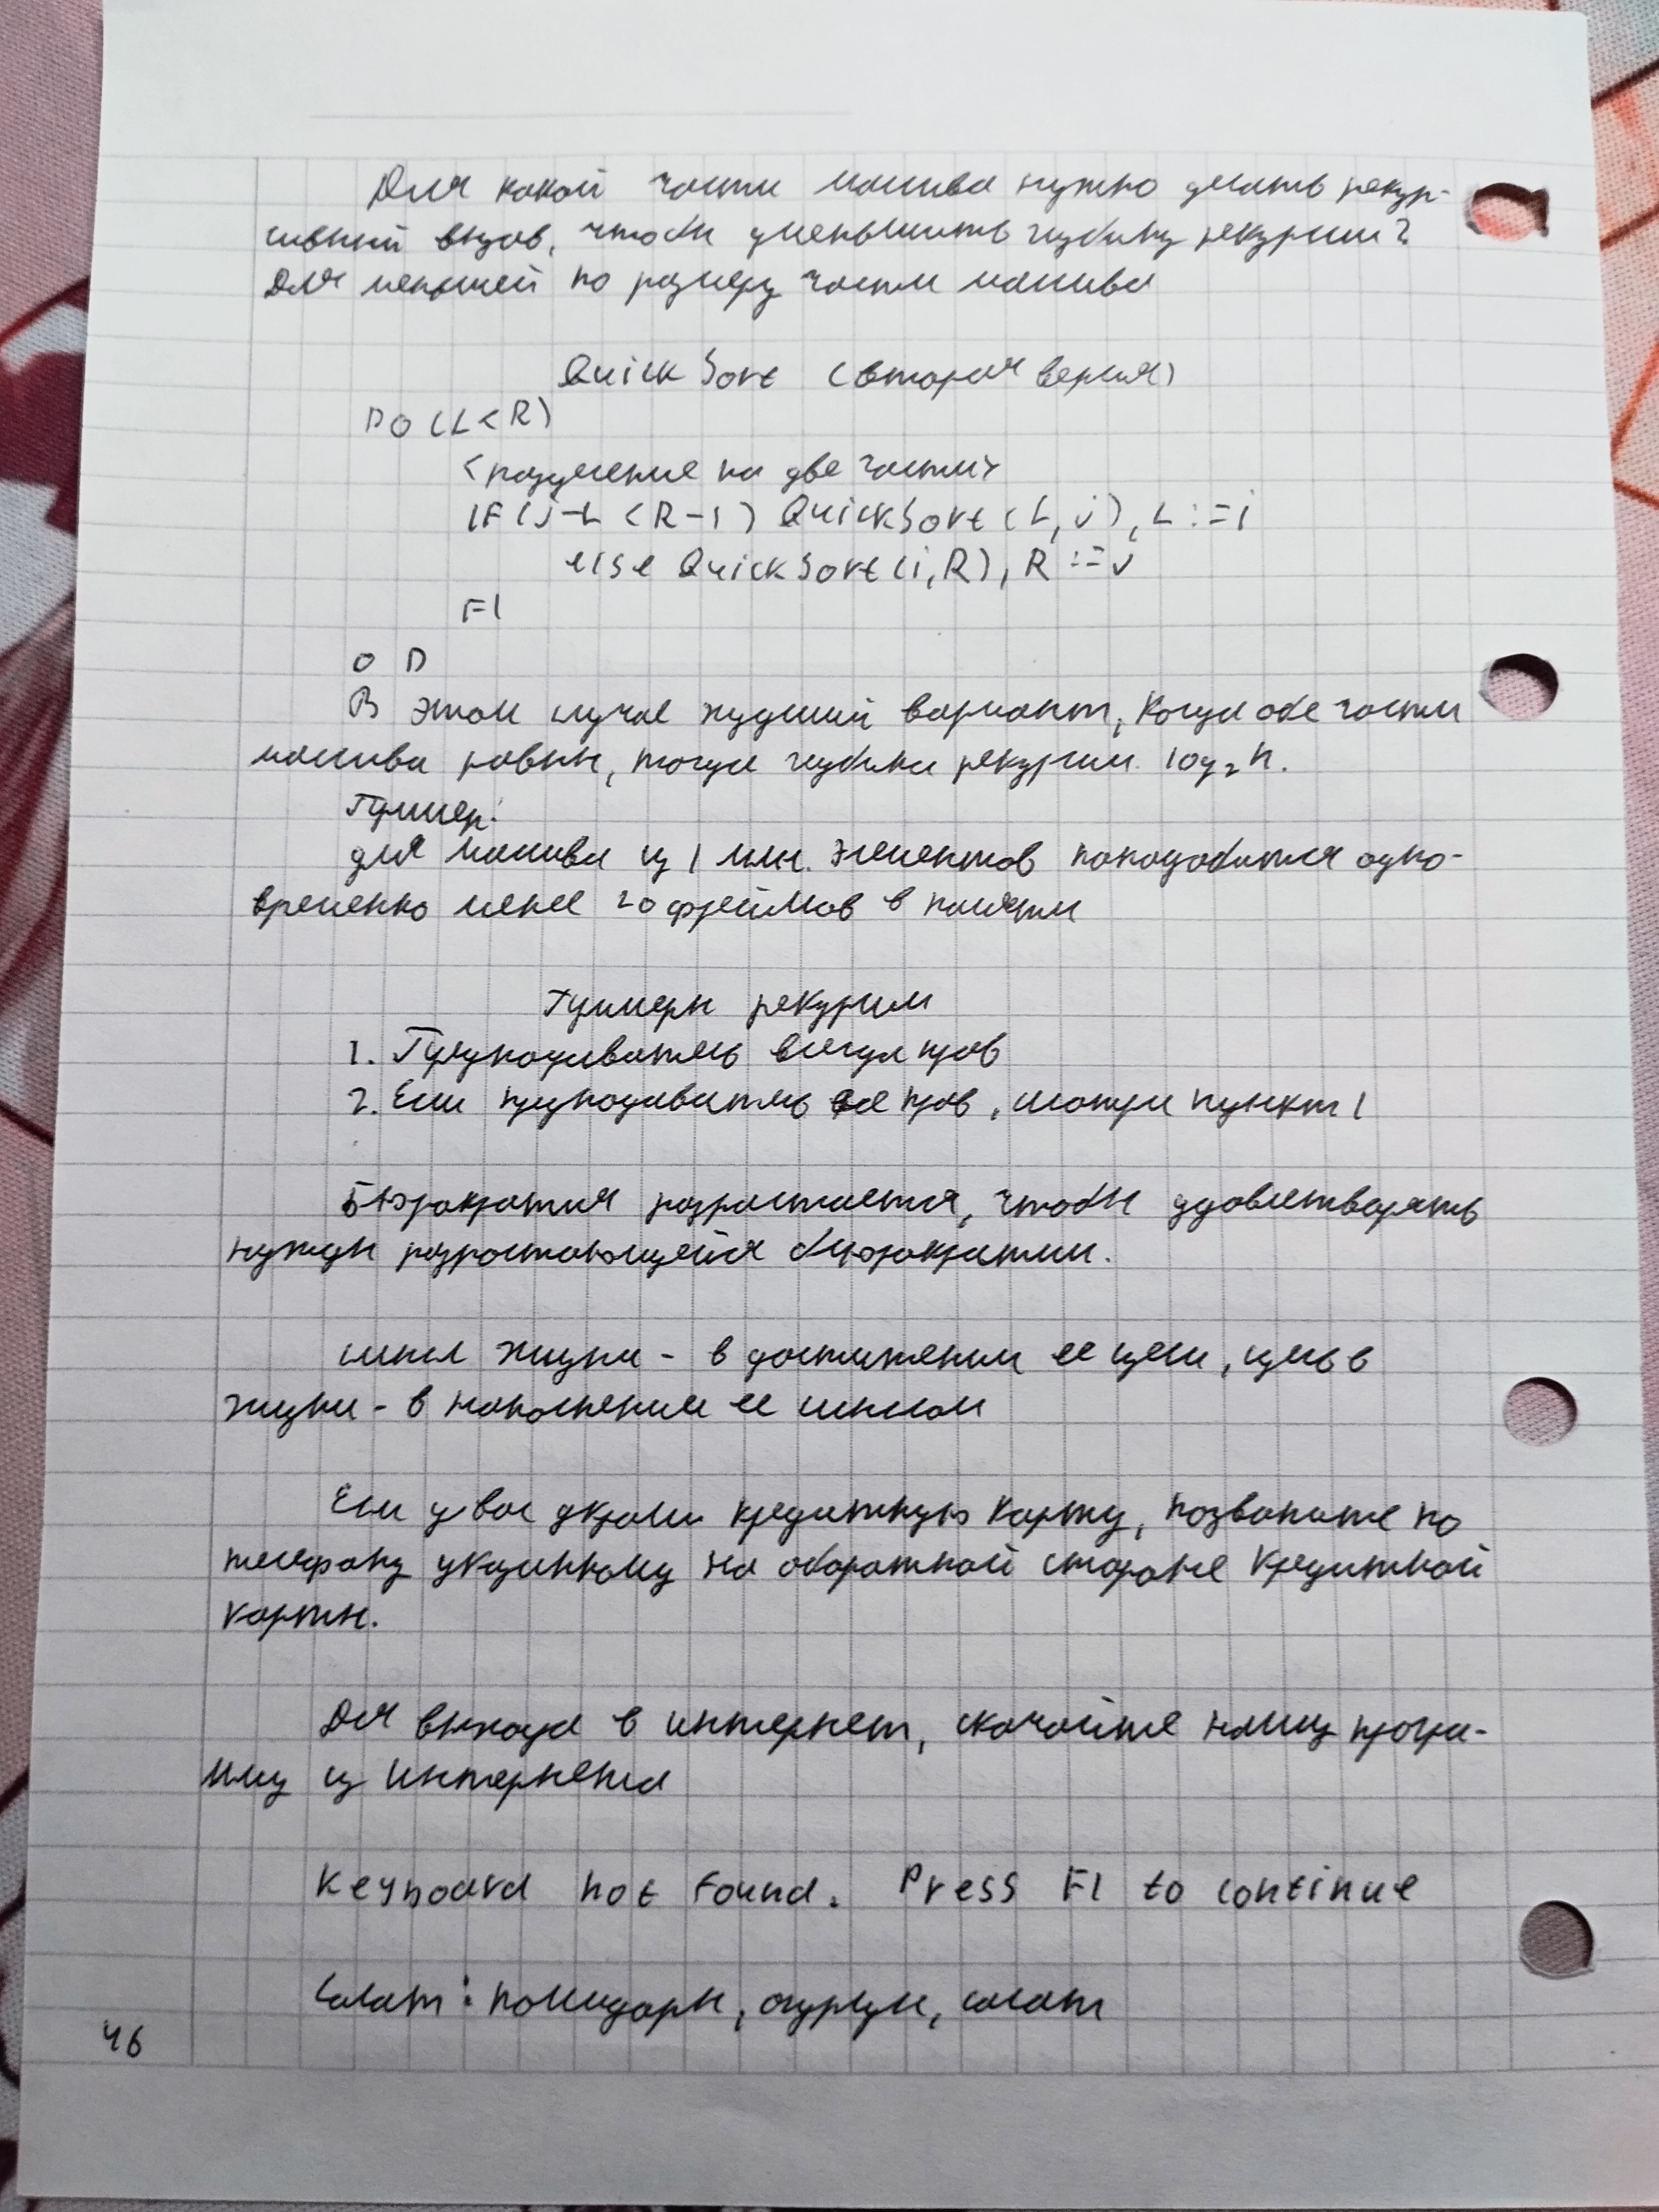 Для какой части массива нужно делать рекур-
сивный вызов, чтобы уменьшить глубину рекурсии?
Для меньшей по размеру части массива
QuickSort (вторая версия)
DO (L<R)
<разделение на две части>
IF (j-L < R-i) QuickSort (L, j), L := i
else QuickSort (i, R), R := j
FI
OD
В этом случае худший вариант, когда обе части
массива равны, тогда глубина рекурсии log₂n.
Пример:
для массива из 1 млн. элементов понадобится одно-
временно менее 20 фреймов в памяти
Примеры рекурсии
1. Преподаватель всегда прав
2. Если преподаватель не прав, смотри пункт 1
Бюрократия разрастается, чтобы удовлетворять
нужды разрастающейся бюрократии.
смысл жизни - в достижении ее цели, цель в
жизни - в наполнении ее смыслом
Если у вас украли кредитную карту, позвоните по
телефону указанному на оборотной стороне кредитной
карты.
Для выхода в интернет, скачайте нашу програ-
мму из интернета
Keyboard not found. Press F1 to continue
Салат: помидоры, огурцы, салат
46